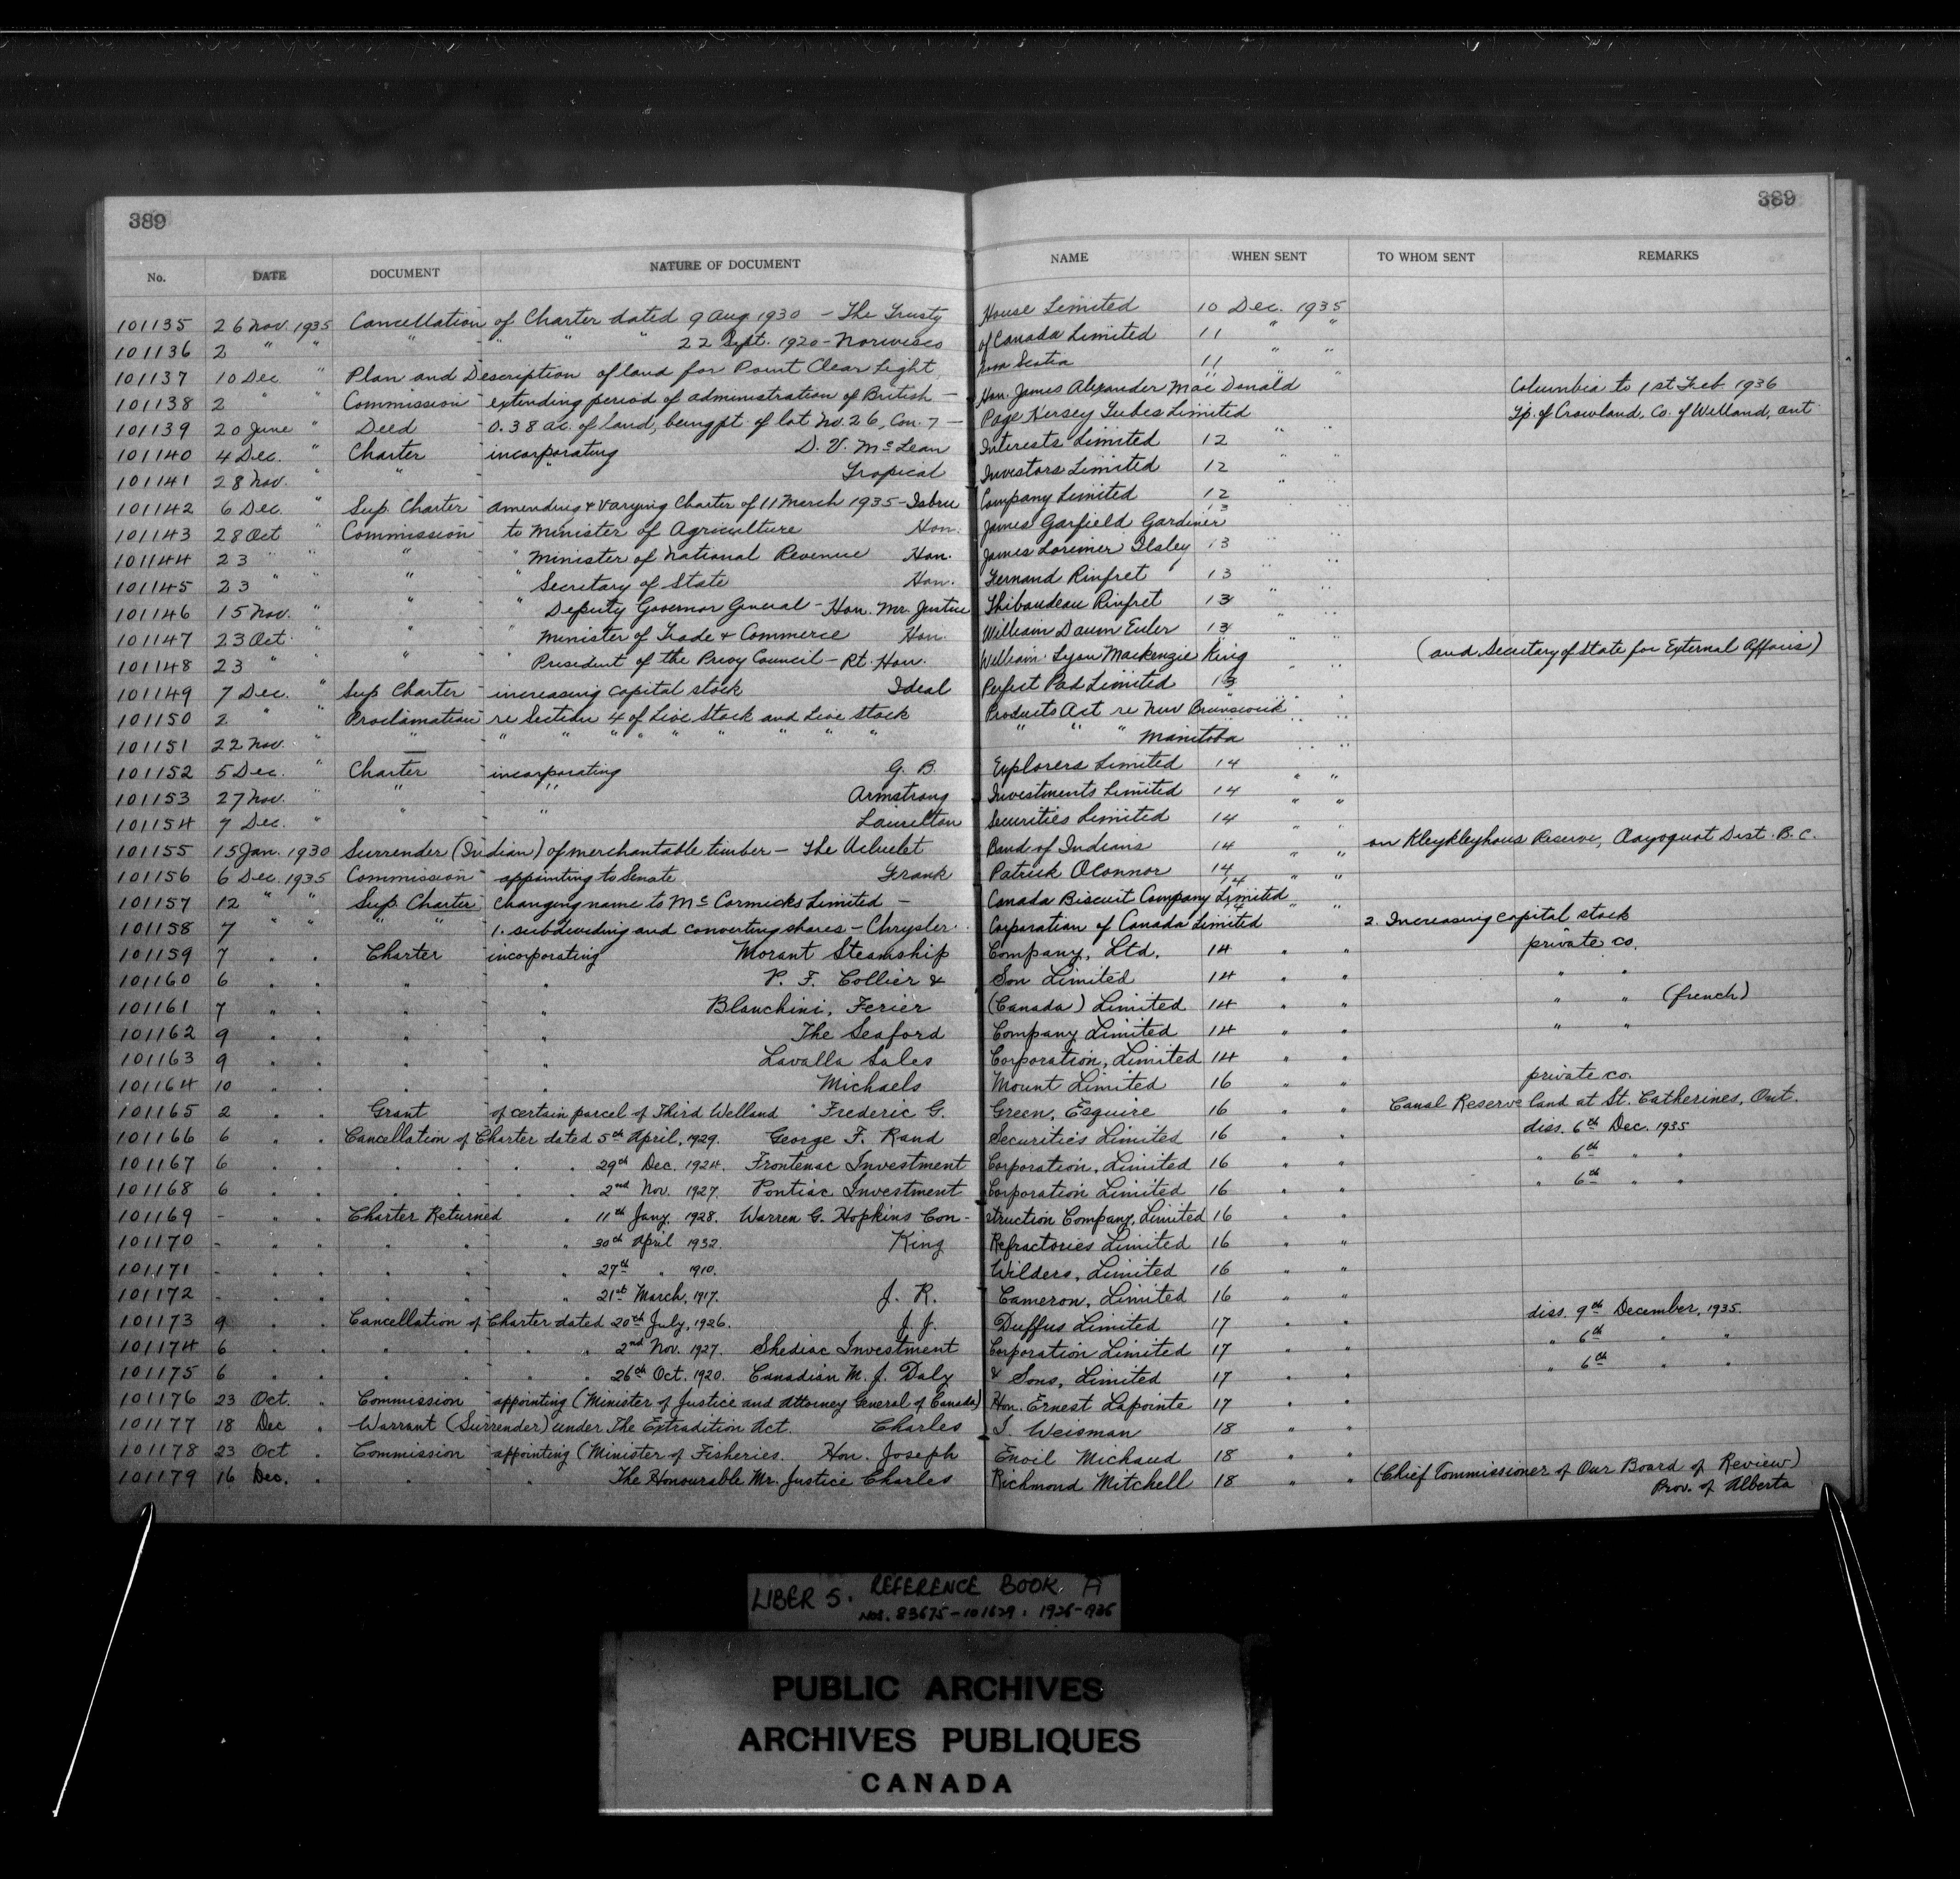 389 389
No. DATE DOCUMENT NATURE OF DOCUMENT NAME WHEN SENT TO WHOM SENT REMARKS
101135 26 Nov. 1935 Cancellation of Charter dated 9 Aug. 1930 - The Trusty House Limited 10 Dec. 1935
101136 2 " " " " " " 22 Sept. 1920 - Norwesco of Canada Limited 11 " "
101137 10 Dec " Plan and Description of land for Point Clear Light, Nova Scotia 11 " "
101138 2 " " Commission - extending period of administration of British - Hon. James Alexander MacDonald " " " Columbia to 1st Feb. 1936
101139 20 June " Deed - 0.38 ac. of land, being pt. of lot No. 26, Con. 7 - Page Hersey Tubes Limited Tp. of Crowland, Co. of Welland, Ont.
101140 4 Dec. " Charter incorporating D. V. McLean Interests Limited 12 " "
101141 28 Nov. " " - " Tropical Investors Limited 12 " "
101142 6 Dec. " Sup. Charter - amending & varying Charter of 11 March 1935 - Isbru Company Limited 12 " "
101143 28 Oct " Commission to Minister of Agriculture Hon. James Garfield Gardiner 13 " "
101144 23 " " " - " Minister of National Revenue Hon. James Lorimer Ilsley 13 " "
101145 23 " " " - " Secretary of State Hon. Fernand Rinfret 13 " "
101146 15 Nov. " " - " Deputy Governor General - Hon. Mr. Justice Thibaudeau Rinfret 13 " "
101147 23 Oct. " " - " Minister of Trade & Commerce Hon. William Daum Euler 13 " "
101148 23 " " " - " President of the Privy Council - Rt. Hon. William Lyon Mackenzie King " " (and Secretary of State for External Affairs)
101149 7 Dec. " Sup Charter - increasing capital stock Ideal Perfect Pad Limited 13 " "
101150 2 " " Proclamation - re Section 4 of Live Stock and Live Stock Products Act re New Brunswick " "
101151 22 Nov. " " - " " " " " " " " " " " " Manitoba " "
101152 5 Dec. " Charter - incorporating G. B. Explorers Limited 14 " "
101153 27 Nov. " " - " Armstrong Investments Limited 14 " "
101154 7 Dec. " " - " Laurelton Securities Limited 14 " "
101155 15 Jan. 1930 Surrender (Indian) of merchantable timber - The Ucluelet Band of Indians 14 " " on Kleykleyhous Reserve, Clayoquot Dist. B.C.
101156 6 Dec. 1935 Commission - appointing to Senate Frank Patrick OConnor 14 " "
101157 12 " " Sup. Charter - changing name to McCormicks Limited - Canada Biscuit Company Limited 14 " "
101158 7 " " " " 1. subdividing and converting shares - Chrysler Corporation of Canada Limited 14 2. Increasing capital stock
101159 7 " " Charter incorporating Morant Steamship Company, Ltd. 14 " " private co.
101160 6 " " " " P. F. Collier & Son Limited 14 " " " "
101161 7 " " " " Blanchini, Ferier (Canada) Limited 14 " " " " (french)
101162 9 " " " " The Seaford Company Limited 14 " " " "
101163 9 " " " " Lavalla Sales Corporation, Limited 14 " "
101164 10 " " " " Michaels Mount Limited 16 " " private co.
101165 2 " " Grant of certain parcel of Third Welland Frederic G. Green, Esquire 16 " " Canal Reserve land at St. Catherines, Ont.
101166 6 " " Cancellation of Charter dated 5th April, 1929. George F. Rand Securities Limited 16 " " diss. 6th Dec. 1935
101167 6 " " " " " " 29th Dec. 1924. Frontenac Investment Corporation, Limited 16 " " " 6th " "
101168 6 " " " " " " 2nd Nov. 1927. Pontiac Investment Corporation Limited 16 " " " 6th " "
101169 - " " Charter Returned " 11th Jany. 1928. Warren G. Hopkins Construction Company, Limited 16 " "
101170 - " " " " " 30th April 1932. King Refractories Limited 16 " "
101171 - " " " " " 27th " 1910. Wilders, Limited 16 " "
101172 - " " " " " 21st March, 1917. J. R. Cameron, Limited 16 " "
101173 9 " " Cancellation of Charter dated 20th July, 1926. J. J. Duffus Limited 17 " " diss. 9th December, 1935.
101174 6 " " " " " " 2nd Nov. 1927. Shediac Investment Corporation Limited 17 " " " 6th " "
101175 6 " " " " " " 26th Oct. 1920. Canadian M. J. Daly & Sons, Limited 17 " " " 6th " "
101176 23 Oct. " Commission appointing (Minister of Justice and Attorney General of Canada) Hon. Ernest Lapointe 17 " "
101177 18 Dec " Warrant (Surrender) under The Extradition Act. Charles I. Weisman 18 " "
101178 23 Oct " Commission appointing (Minister of Fisheries. Hon. Joseph Enoil Michaud 18 " "
101179 16 Dec. " " " The Honourable Mr. Justice Charles Richmond Mitchell 18 " " (Chief Commissioner of Our Board of Review)
Prov. of Alberta
LIBER 5. REFERENCE BOOK A
NOS. 83675-101629. 1926-1936
PUBLIC ARCHIVES
ARCHIVES PUBLIQUES
CANADA